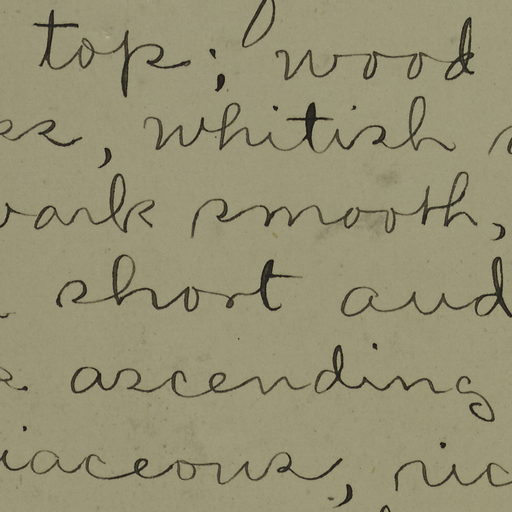 top; wood
, whitish
bark smooth,
short and
ascending
iaceous, ric